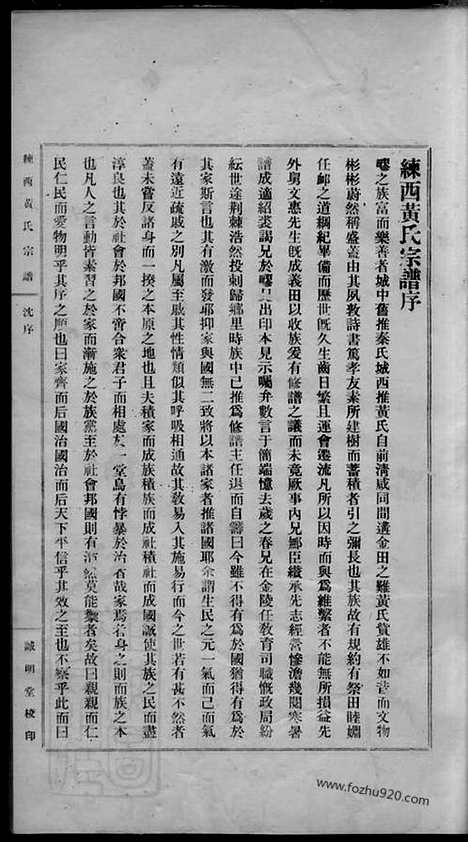 練西黃氏宗譜序
嚶之族富而樂善者城中舊推秦氏城西推黃氏自前清咸同間遘金田之難黃氏貲雄不如昔而文物
彬彬蔚然稱盛蓋由其夙敦詩書篤孝友素所建樹而蓄積者引之彌長也其族故有規約有祭田睦婣
任卹之道綱紀畢備而歷世旣久生齒日繁且運會遷流凡所以因時而與爲維繫者不能無所損益先
外舅文惠先生旣成義田以收族爰有修譜之議而未竟厥事內兄鄉臣繼承先志經營慘澹幾閱寒暑
譜成適紹裘謁兄於嚶兄出印本見示囑弁數言于簡端憶去歲之春兄在金陵任敎育司職慨政局紛
紜世途荆棘浩然投劾歸鄉里時族中已推爲修譜主任退而自籌曰今雖不得有爲於國猶得有爲於
其家斯言也其有激而發耶抑家與國無二致將以本諸家者推諸國耶余謂生民之元一氣而已而氣
有遠近疏戚之別凡屬至戚其性情類似其呼吸相通故其敎易入其施易行而今之世若有甚不然者
蓋未嘗反諸身而一揆之本原之地也且夫積家而成族積族而成社積社而成國誠使其族之民而盡
淳良也其於社會於邦國不啻合衆君子而相處於一堂烏有悖暴於治者哉故家爲君身之之則而族之本
也凡人之言動皆素習之於家而漸施之於族黨至於社會邦國則有沛然莫能禦者矣故曰親親而仁
民仁民而愛物明乎其序之順也曰家齊而后國治國治而后天下平信乎其效之至也不察乎此而曰
練西黃氏宗譜
沈序
誠明堂校印
www.fozhu920.com